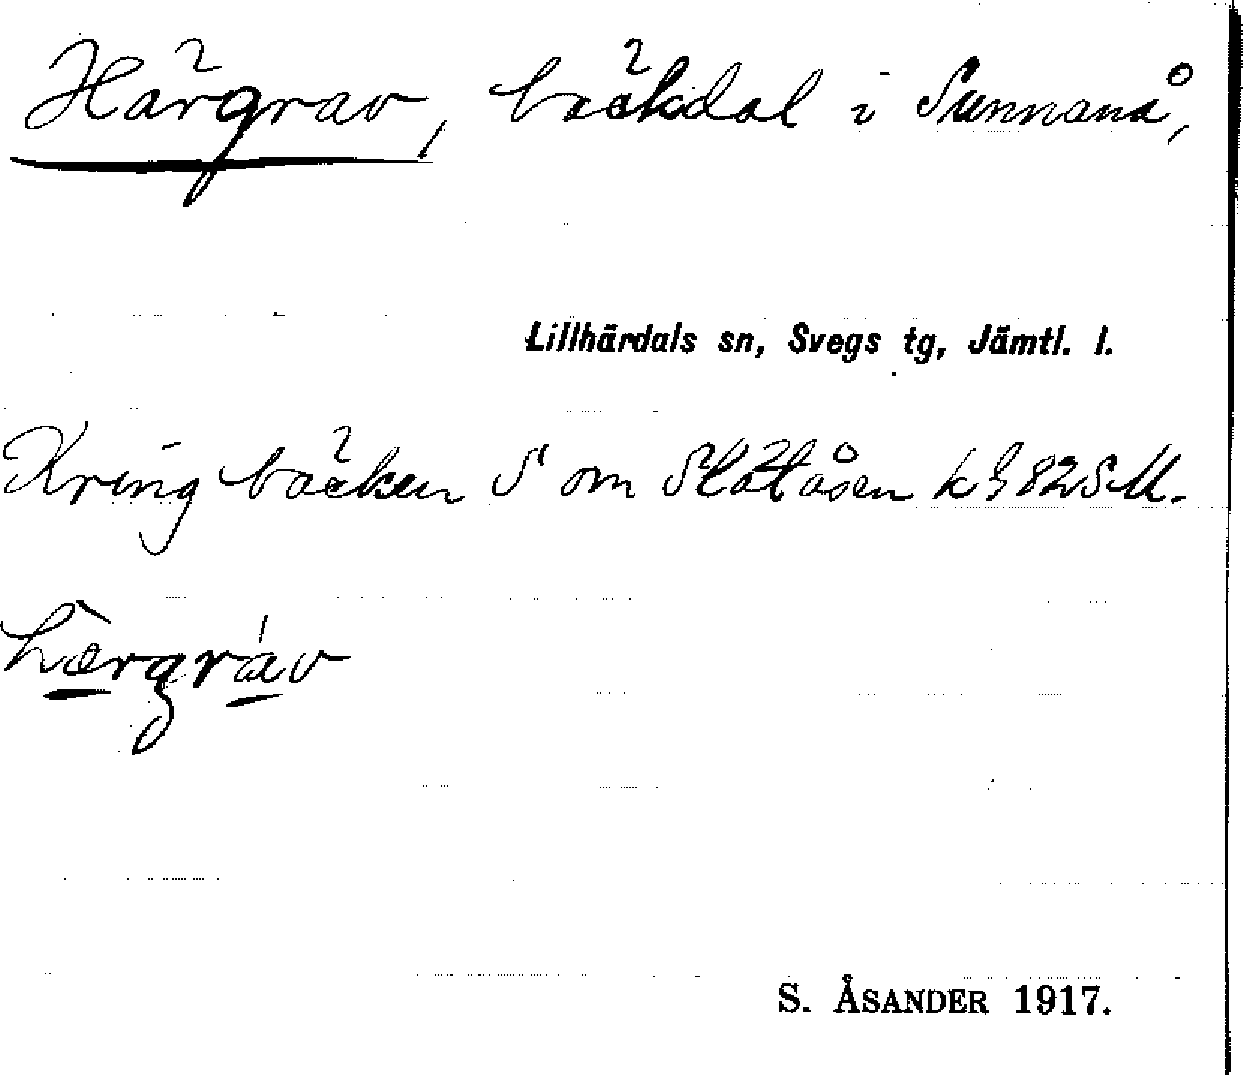 Härgrav, bäckdal i Sunnanå,
Lillhärdals sn, Svegs tg, Jämtl. l.
Kring bäcken S om Slätåsen k§ 82 SM.
hærgráv
S. ÅSANDER 1917.